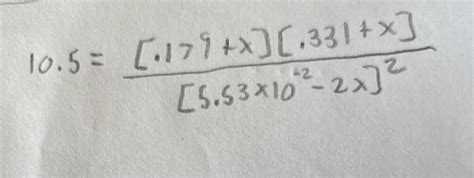 10.5 = [.179+x][.331+x]
[5.53×10⁻²-2x]²